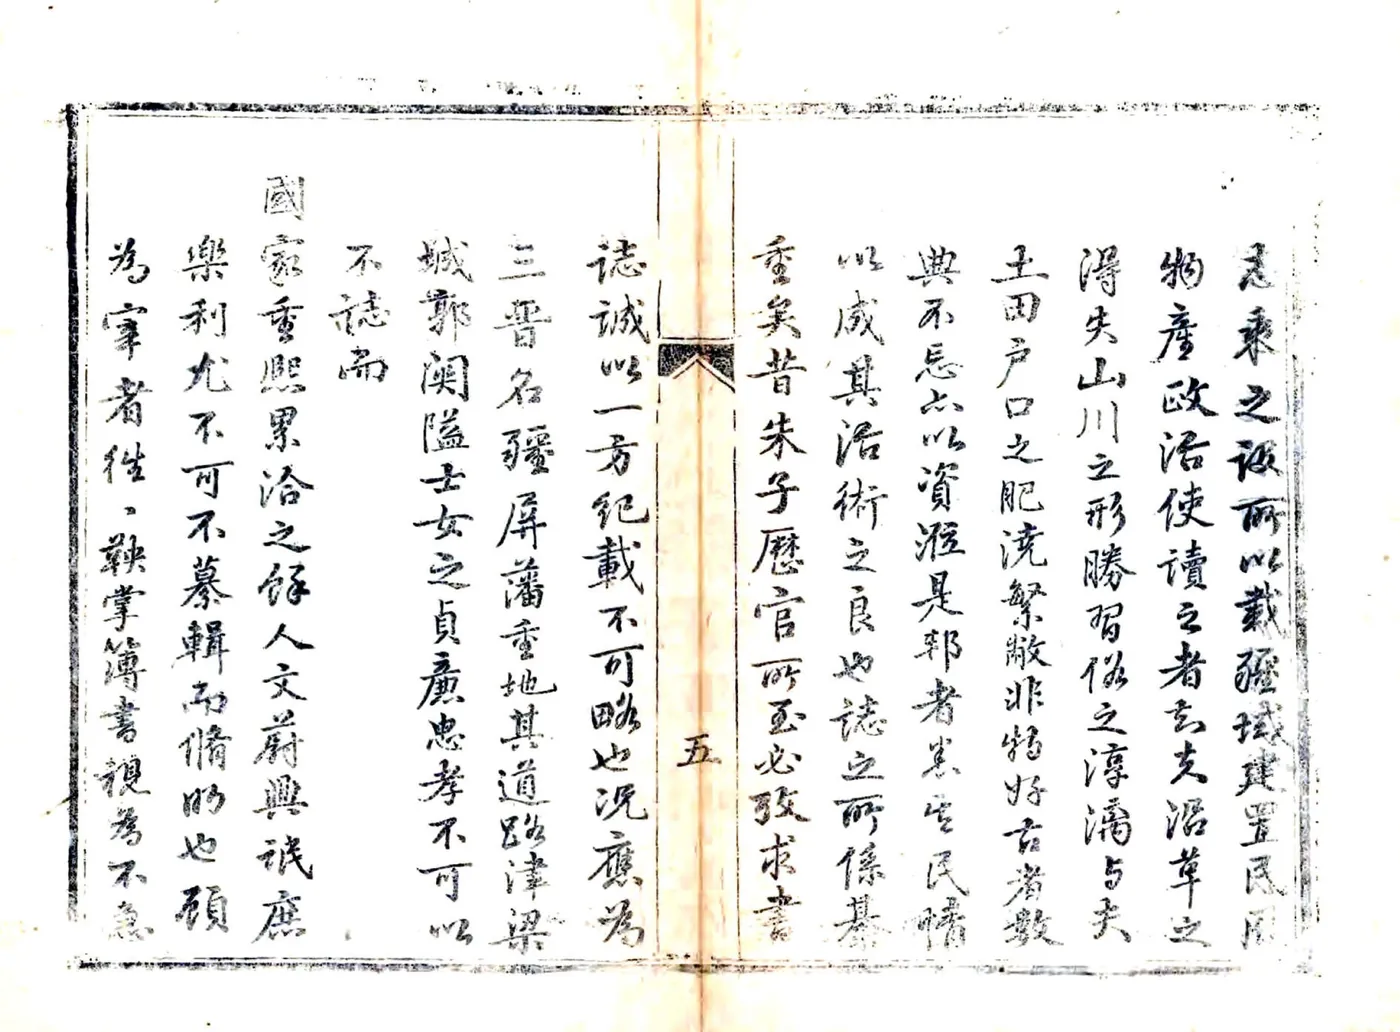 志乘之設所以載疆域建置民風
物產政治使讀之者知夫沿革之
得失山川之形勝習俗之淳漓与夫
土田户口之肥澆繁敝非特好古者數
典不忘亦以資涖是邦者悉其民情
以咸其治術之良也誌之所係綦
重矣昔朱子歷官所至必攷求書
誌誠以一方紀載不可略也况應為
三晉名疆屏藩重地其道路津梁
城郭関隘士女之貞廉忠孝不可以
不誌而
國家重熙累洽之餘人文蔚興氓庶
樂利尤不可不纂輯而脩明也顧
為宰者往〻鞅掌簿書視為不急
五